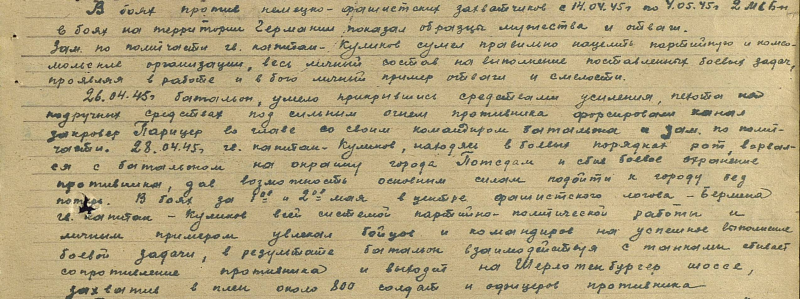 В боях против немецко-фашистских захватчиков с 14.04.45г по 4.05.45г 2 МБ б-н
в боях на территории Германии показал образцы мужества и отваги.
Зам. по политчасти гв. капитан - Куликов сумел правильно нацелить партийную и комсо-
мольские организации, весь личный состав на выполнение поставленных боевых задач,
проявляя в работе и в бою личный пример отваги и смелости.
26.04.45г батальон, умело прикрывшись средствами усиления, пехота на
подручных средствах под сильным огнем противника форсировали канал
во главе со своим командиром батальона и зам. по полит-
части. 28.04.45г гв. капитан - Куликов, находясь в боевых порядках рот, ворвал-
ся с батальоном на окраину города Потсдам и сбив боевое охранение
противника, дав возможность основным силам подойти к городу без
потерь. В боях за 1ое и 2ое мая в центре фашистского логова - Берлина
гв. капитан - Куликов всей системой партийно-политической работы и
личным примером увлекал бойцов и командиров на успешное выполнение
боевой задачи, в результате батальон взаимодействуя с танками сбивает
сопротивление противника и выходит на Шерлотенбургер шоссе,
захватив в плен около 800 солдат и офицеров противника